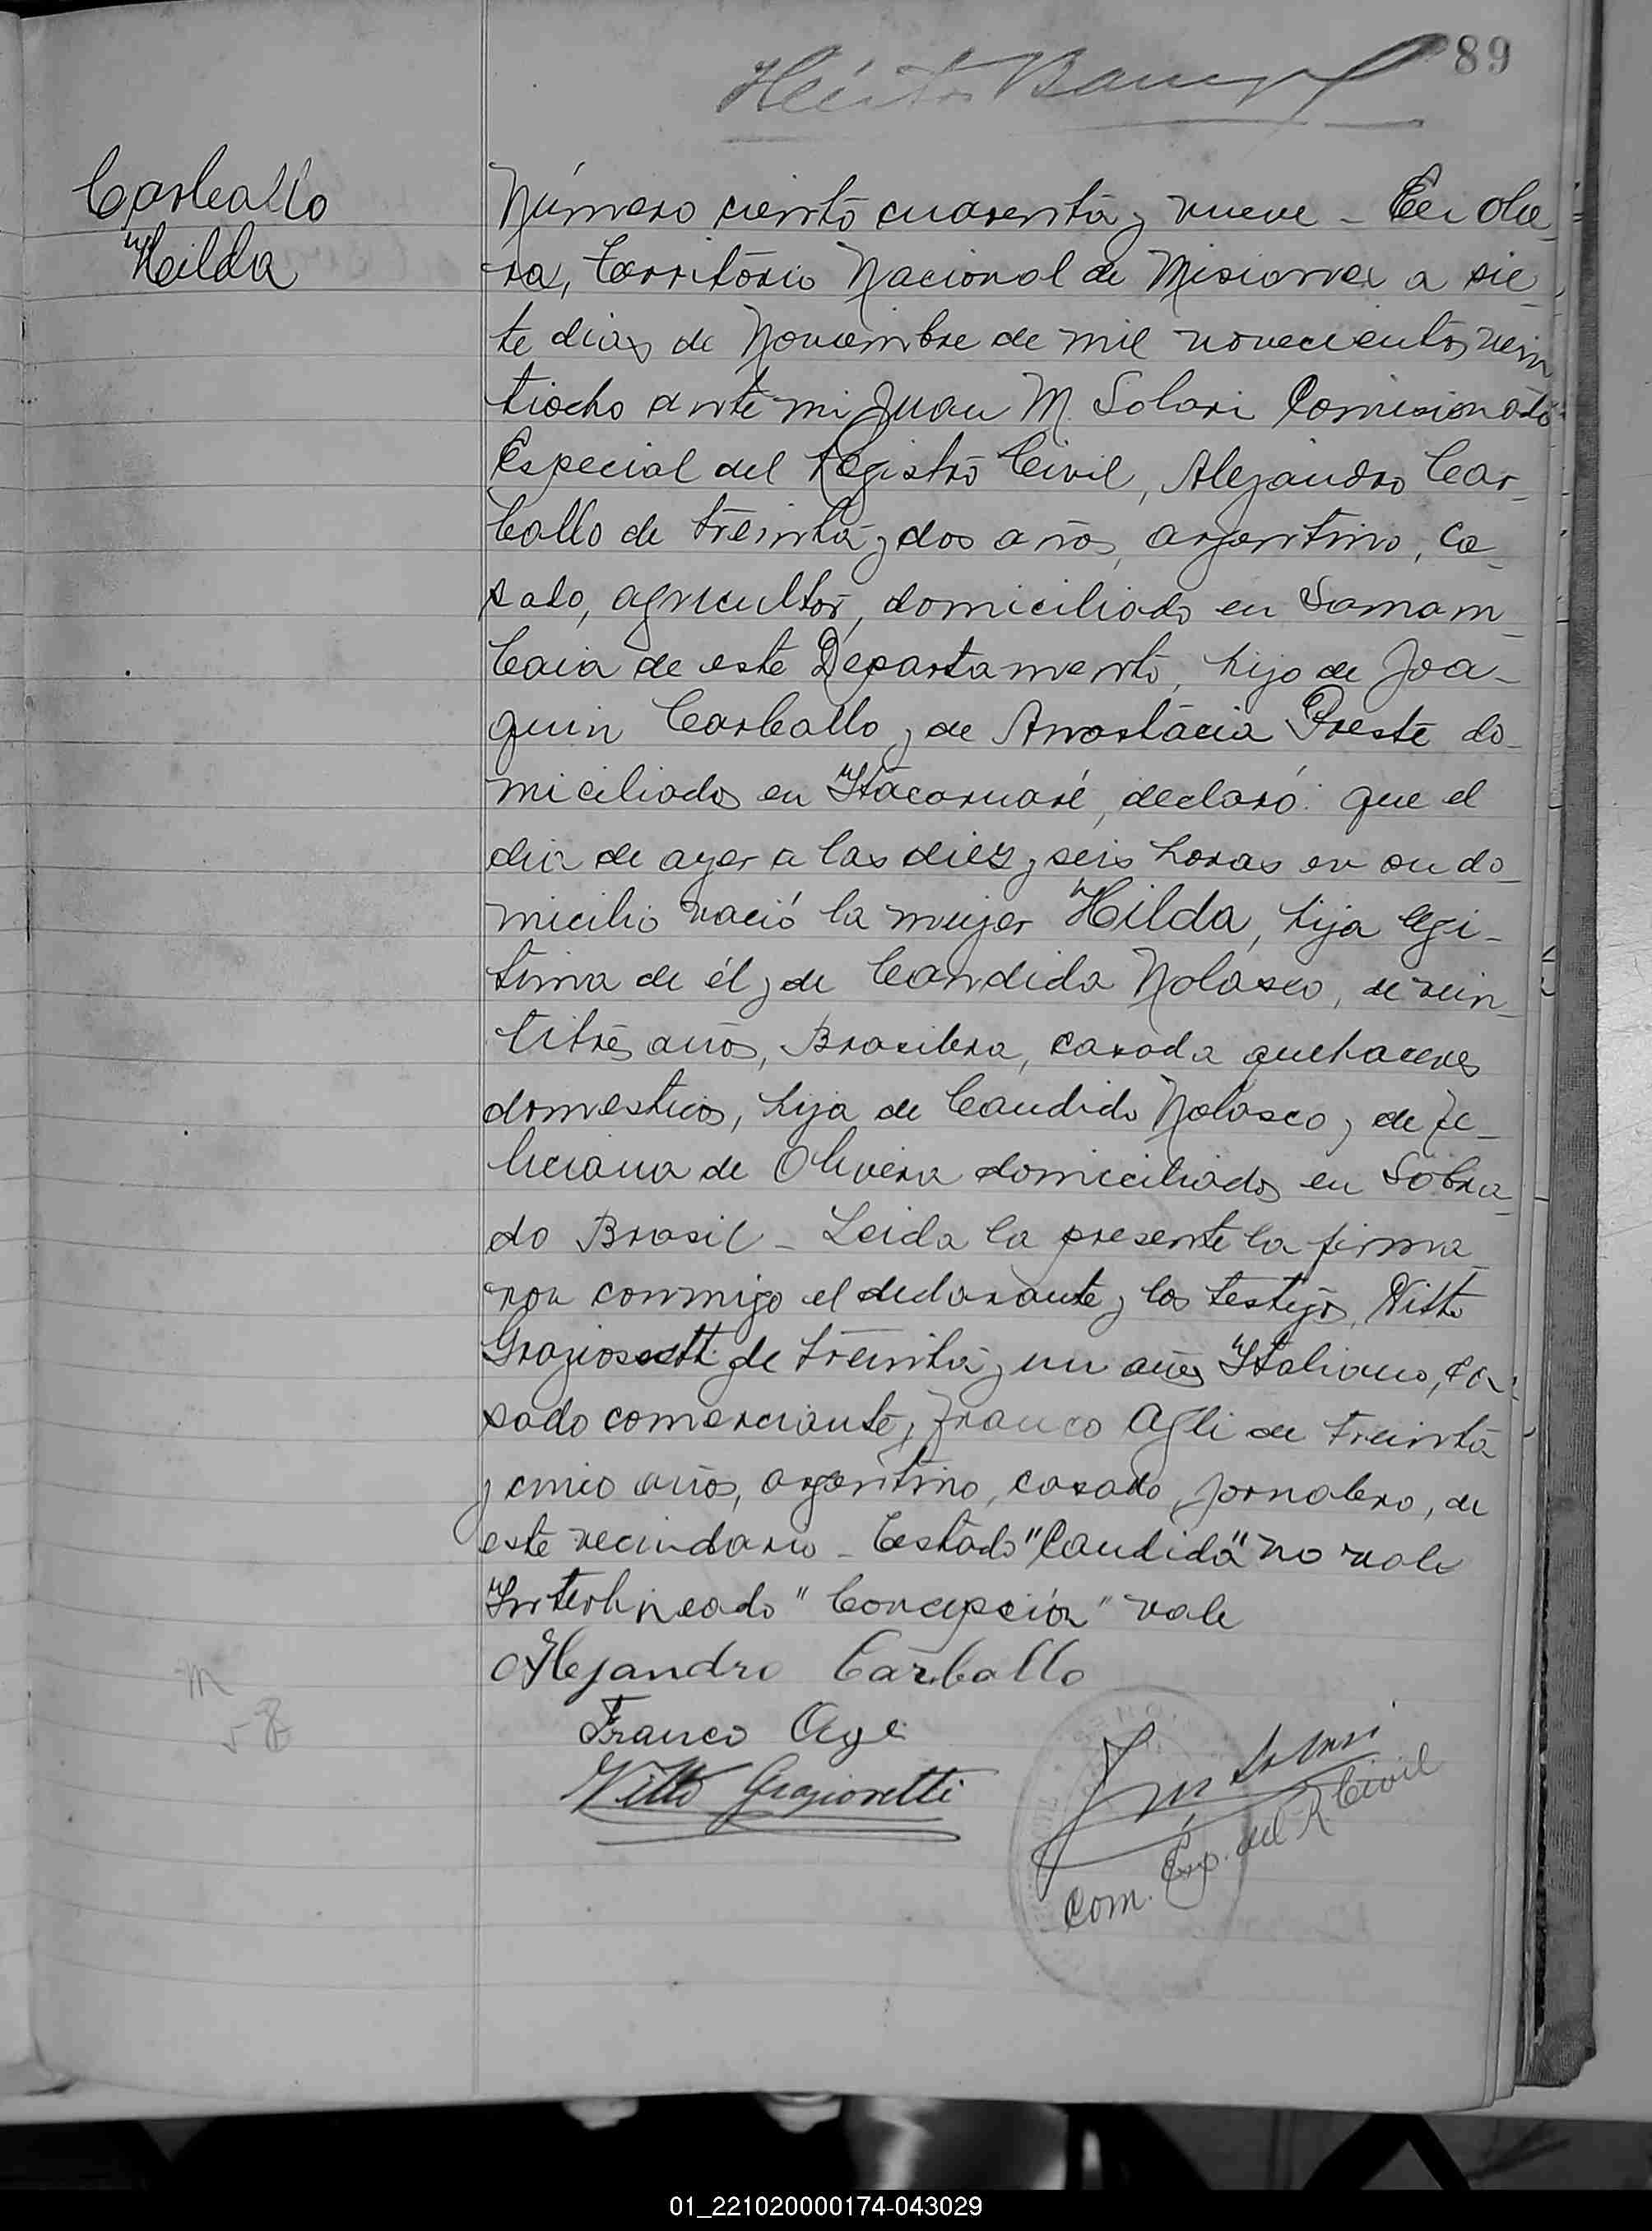 89
Carballo
Hilda
Número ciento cuarenta y nueve - En Obe-
ra, Territorio Nacional de Misiones a sie-
te dias de Noviembre de mil novecientos vein
tiocho ante mi Juan M. Solari Comisionado
Especial del Registro Civil, Alejandro Car-
ballo de treinta y dos años, argentino, ca-
sado, agricultor, domiciliado en Samam-
baia de este Departamento, hijo de Joa-
quin Carballo y de Anastacia Preste do-
miciliados en Itacaruaré, declaró: que el
dia de ayer a las diez y seis horas en su do-
micilio nació la mujer Hilda, hija legi-
tima de él y de Candida Nolasco, de vein-
titrés años, Brasilera, casada quehaceres
domesticos, hija de Candido Nolasco y de Fe-
liciana de Olivera domiciliados en Sobra-
do Brasil - Leida la presente la firma-
ron conmigo el declarante y los testigos, Vitto
Graziosetti de treinta y un años Italiano, ca-
sado comerciante y Franco Agli de treinta
y cinco años, argentino, casado, jornalero, de
este vecindario - Testado "Candida" no vale
Interlineado "Concepción" vale
Alejandro Carballo
Franco
Vitto Graziosetti
J M Solari
Com. Esp. del R. Civil
01_221020000174-043029